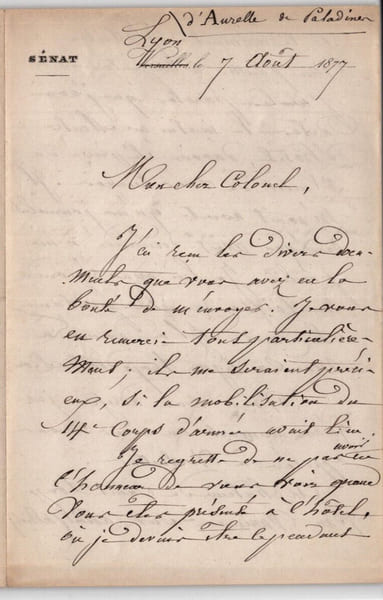 d'Aurelle de Paladines
SÉNAT
Lyon
Versailles le 7 Août 1877
Mon cher Colonel,
J'ai reçu les divers docu-
ments que vous avez eu la
bonté de m'envoyer. Je vous
en remercie tout particulière-
ment; ils me seraient préci-
eux, si la mobilisation du
14e Corps d'armée avait lieu.
Je regrette de ne pas avoir eu
l'honneur de vous voir quand
vous êtes présenté à l'hôtel,
où je devais être le pendant